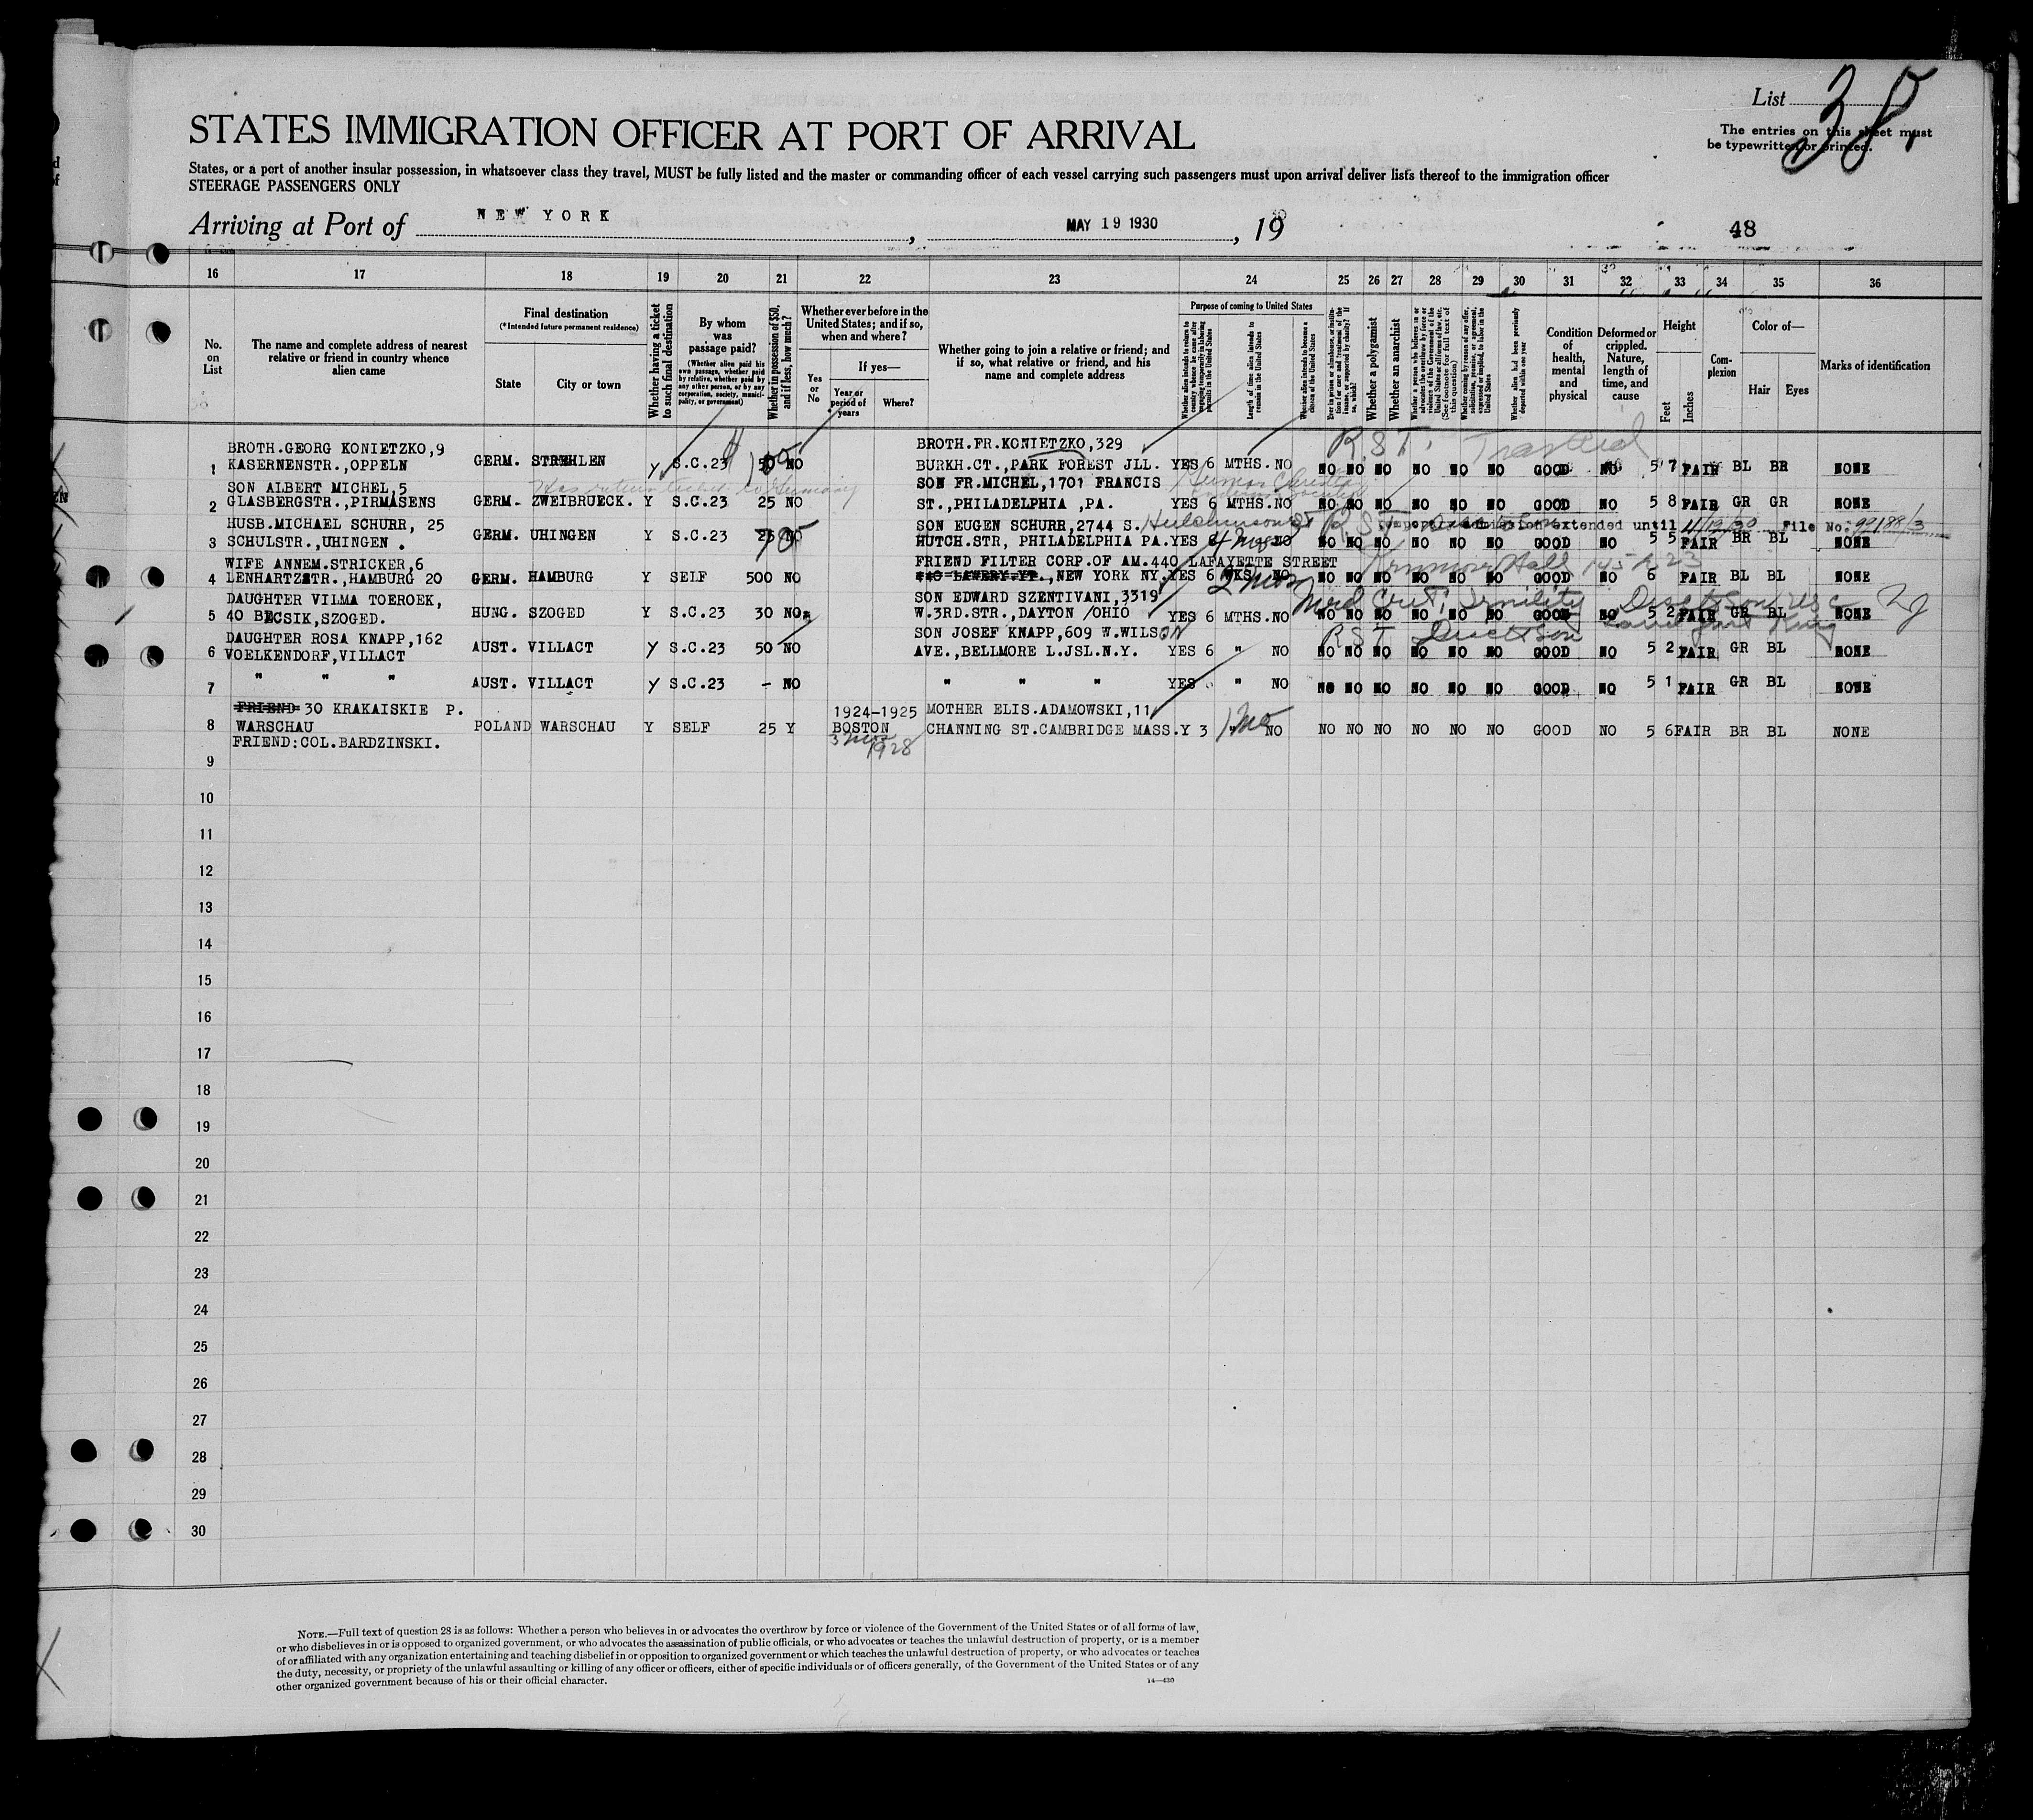 List 38
The entries on this sheet must
be typewritten or printed.
STATES IMMIGRATION OFFICER AT PORT OF ARRIVAL
States, or a port of another insular possession, in whatsoever class they travel, MUST be fully listed and the master or commanding officer of each vessel carrying such passengers must upon arrival deliver lists thereof to the immigration officer
STEERAGE PASSENGERS ONLY
Arriving at Port of NEW YORK, MAY 19 1930, 19
48
16 17 18 19 20 21 22 23 24 25 26 27 28 29 30 31 32 33 34 35 36
No. on List
The name and complete address of nearest
relative or friend in country whence
alien came
Final destination
(*Intended future permanent residence)
State
City or town
Whether having a ticket
to such final destination
By whom
was
passage paid?
(Whether alien paid his
own passage, whether paid
by relative, whether paid by
any other person, or by any
corporation, society, munici-
pality, or government)
Whether in possession of $50,
and if less, how much?
Whether ever before in the
United States; and if so,
when and where?
Yes
or
No
If yes—
Year or
period of
years
Where?
Whether going to join a relative or friend; and
if so, what relative or friend, and his
name and complete address
Purpose of coming to United States
Whether alien intends to return to
country whence he came after
engaging temporarily in laboring
pursuits in the United States
Length of time alien intends to
remain in the United States
Whether alien intends to become a
citizen of the United States
Ever in prison or almshouse, or institu-
tion for care and treatment of the
insane, or supported by charity? If
so, which?
Whether a polygamist
Whether an anarchist
Whether a person who believes in or
advocates the overthrow by force or
violence of the Government of the
United States or all forms of law, etc.
(See footnote for full text of
this question)
Whether coming by reason of any offer,
solicitation, promise, or agreement,
expressed or implied, to labor in the
United States
Whether alien had been previously
deported within one year
Condition
of
health,
mental
and
physical
Deformed or
crippled.
Nature,
length of
time, and
cause
Height
Feet
Inches
Com-
plexion
Color of—
Hair
Eyes
Marks of identification
BROTH.GEORG KONIETZKO,9 BROTH.FR.KONIETZKO,329 R.S.T.
1 KASERNENSTR.,OPPELN GERM. STREHLEN Y S.C.23 50 NO BURKH.CT.,PARK FOREST JLL. YES 6 MTHS. NO NO NO NO NO NO NO GOOD NO 5 7 FAIR BL BR NONE
SON ALBERT MICHEL,5 SON FR.MICHEL,1701 FRANCIS
2 GLASBERGSTR.,PIRMASENS GERM. ZWEIBRUECK. Y S.C.23 25 NO ST.,PHILADELPHIA ,PA. YES 6 MTHS.NO NO NO NO NO NO NO GOOD NO 5 8 FAIR GR GR NONE
HUSB.MICHAEL SCHURR, 25 SON EUGEN SCHURR,2744 S. Hutchinson St admission extended until 11/19/30 File No. 99188/3
3 SCHULSTR.,UHINGEN . GERM. UHINGEN Y S.C.23 25 NO HUTCH.STR, PHILADELPHIA PA.YES 6 NO NO NO NO NO NO NO GOOD NO 5 5 FAIR BR BL NONE
WIFE ANNEM.STRICKER,6 FRIEND FILTER CORP.OF AM.440 LAFAYETTE STREET
4 LENHARTZSTR.,HAMBURG 20 GERM. HAMBURG Y SELF 500 NO NEW YORK NY.YES 6 WKS. NO 2 mos NO NO NO NO NO NO GOOD NO 6 FAIR BL BL NONE
DAUGHTER VILMA TOEROEK, SON EDWARD SZENTIVANI,3319 Med Cert. Senility
5 40 BECSIK,SZOGED. HUNG. SZOGED Y S.C.23 30 NO W.3RD.STR.,DAYTON /OHIO YES 6 MTHS.NO NO NO NO NO NO NO GOOD NO 5 2 FAIR GR BL NONE
DAUGHTER ROSA KNAPP,162 SON JOSEF KNAPP,609 W.WILSON R S T
6 VOELKENDORF,VILLACT AUST. VILLACT Y S.C.23 50 NO AVE.,BELLMORE L.JSL.N.Y. YES 6 " NO NO NO NO NO NO NO GOOD NO 5 2 FAIR GR BL NONE
7 " " " AUST. VILLACT Y S.C.23 - NO " " " YES " NO NO NO NO NO NO NO GOOD NO 5 1 FAIR GR BL NONE
FRIEND 30 KRAKAISKIE P. 1924-1925 MOTHER ELIS.ADAMOWSKI,11
8 WARSCHAU POLAND WARSCHAU Y SELF 25 Y BOSTON CHANNING ST.CAMBRIDGE MASS.Y 3 " NO 1 mo NO NO NO NO NO NO GOOD NO 5 6 FAIR BR BL NONE
FRIEND:COL.BARDZINSKI. 3 mos 1928
9
10
11
12
13
14
15
16
17
18
19
20
21
22
23
24
25
26
27
28
29
30
NOTE.—Full text of question 28 is as follows: Whether a person who believes in or advocates the overthrow by force or violence of the Government of the United States or of all forms of law,
or who disbelieves in or is opposed to organized government, or who advocates the assassination of public officials, or who advocates or teaches the unlawful destruction of property, or is a member
of or affiliated with any organization entertaining and teaching disbelief in or opposition to organized government or which teaches the unlawful destruction of property, or who advocates or teaches
the duty, necessity, or propriety of the unlawful assaulting or killing of any officer or officers, either of specific individuals or of officers generally, of the Government of the United States or of any
other organized government because of his or their official character.
14—430